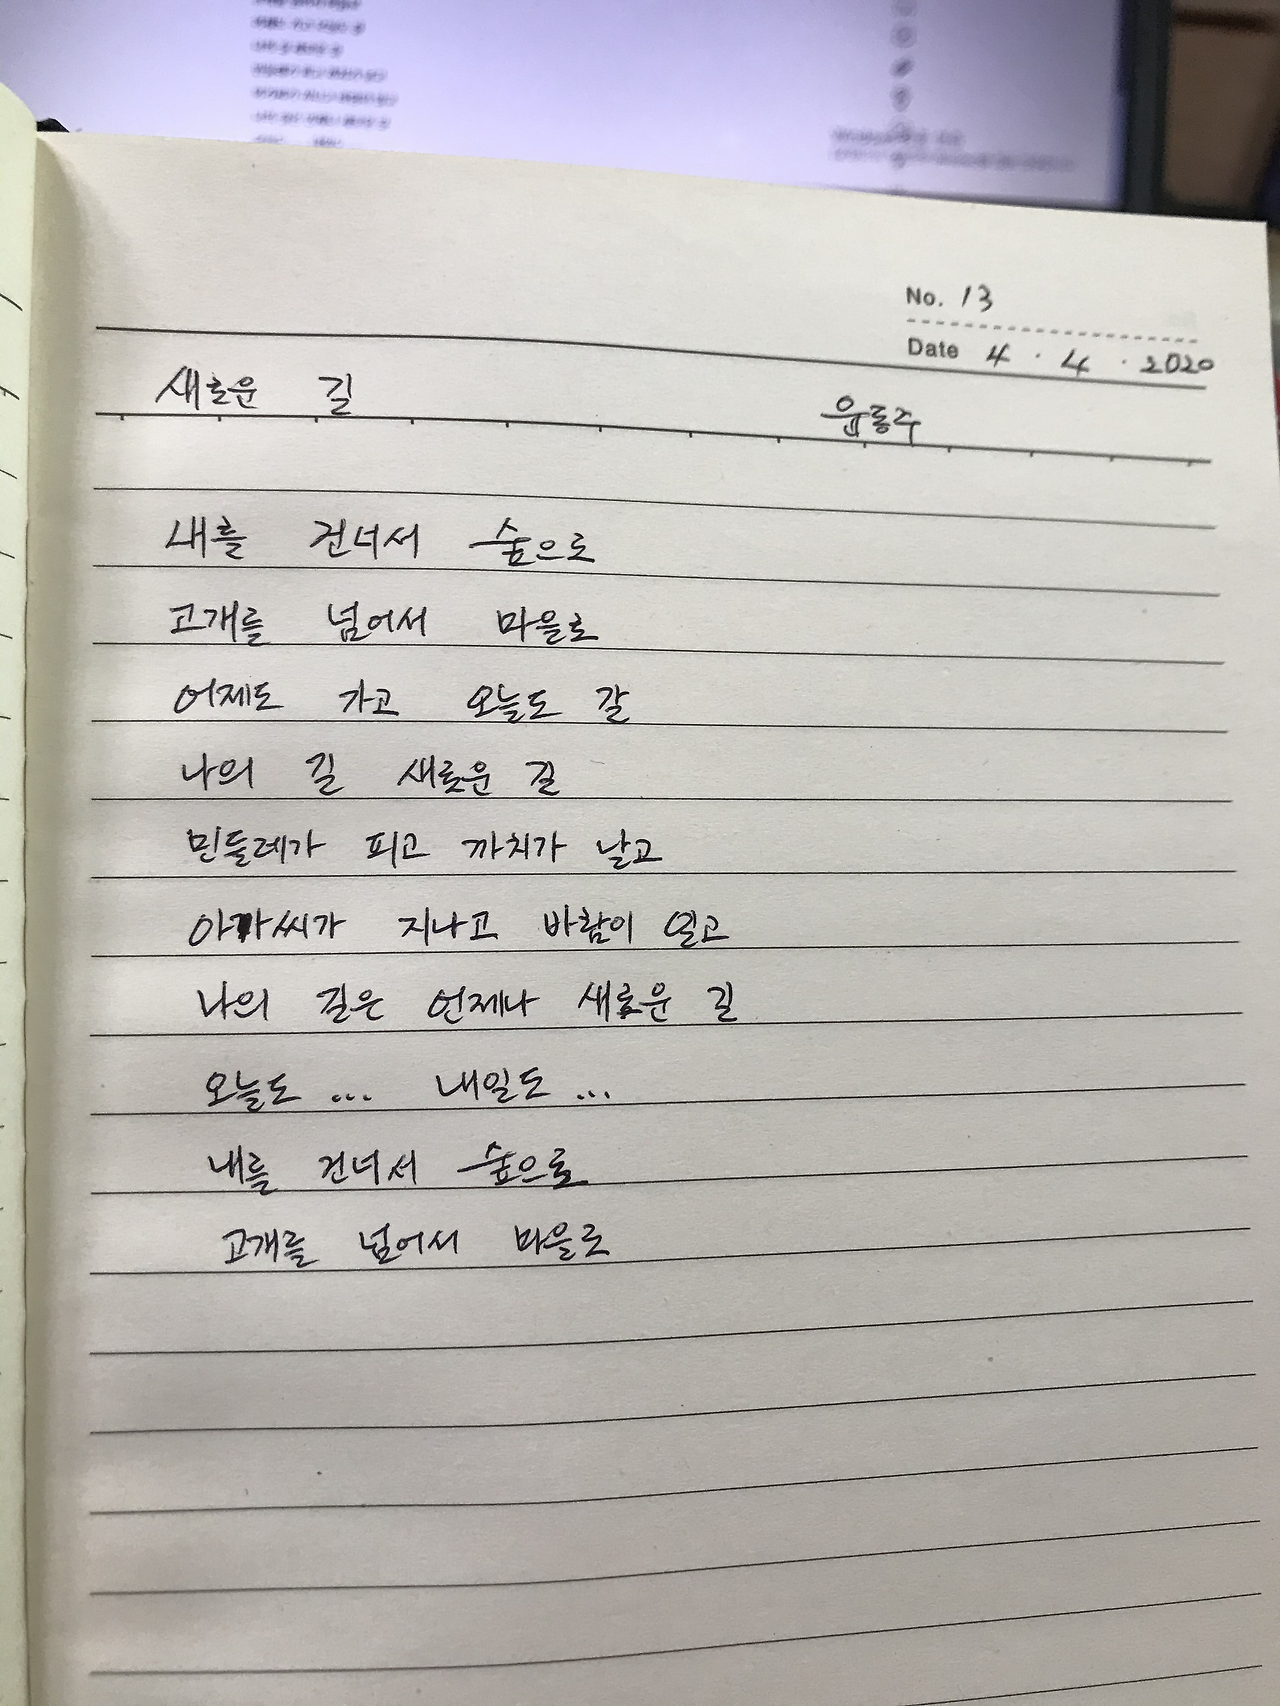 No. 13
Date 4 . 4 . 2020
새로운 길 윤동주
내를 건너서 숲으로
고개를 넘어서 마을로
어제도 가고 오늘도 갈
나의 길 새로운 길
민들레가 피고 까치가 날고
아가씨가 지나고 바람이 일고
나의 길은 언제나 새로운 길
오늘도 ... 내일도 ...
내를 건너서 숲으로
고개를 넘어서 마을로